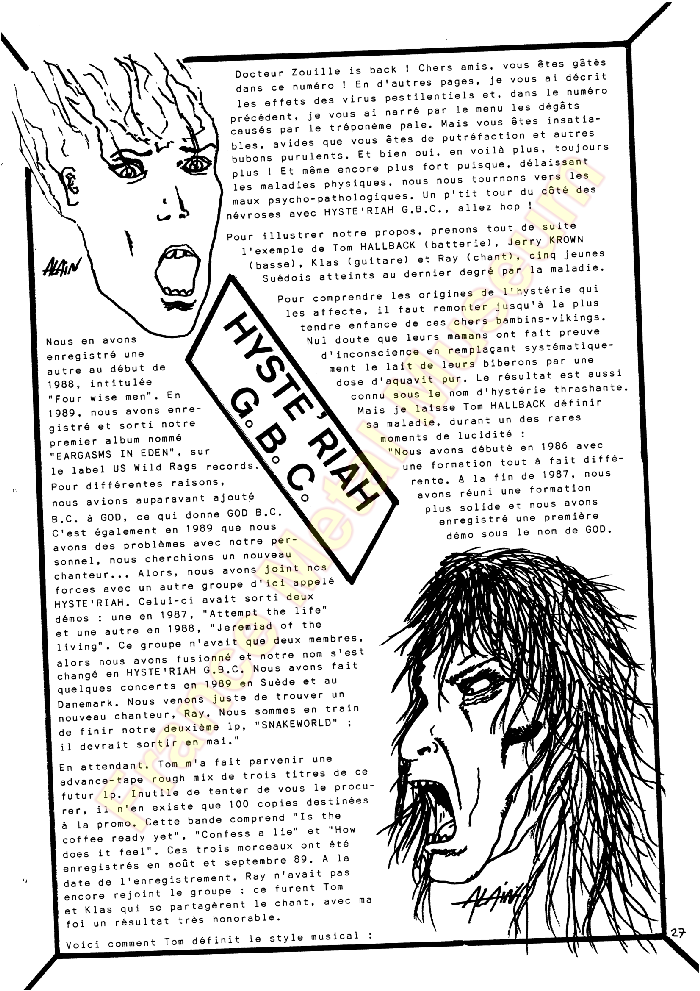 Docteur Zouille is back ! Chers amis, vous êtes gâtés
dans ce numéro ! En d'autres pages, je vous ai décrit
les effets des virus pestilentiels et, dans le numéro
précédent, je vous ai narré par le menu les dégâts
causés par le tréponème pale. Mais vous êtes insatia-
bles, avides que vous êtes de putréfaction et autres
bubons purulents. Et bien oui, en voilà plus, toujours
plus ! Et même encore plus fort puisque, délaissant
les maladies physiques, nous nous tournons vers les
maux psycho-pathologiques. Un p'tit tour du côté des
névroses avec HYSTE'RIAH G.B.C., allez hop !
Pour illustrer notre propos, prenons tout de suite
l'exemple de Tom HALLBACK (batterie), Jerry KROWN
(basse), Klas (guitare) et Ray (chant), cinq jeunes
Suédois atteints au dernier degré par la maladie.
Pour comprendre les origines de l'hystérie qui
les affecte, il faut remonter jusqu'à la plus
tendre enfance de ces chers bambins-vikings.
Nul doute que leurs mamans ont fait preuve
d'inconscience en remplaçant systématique-
ment le lait de leurs biberons par une
dose d'aquavit pur. Le résultat est aussi
connu sous le nom d'hystérie thrashante.
Mais je laisse Tom HALLBACK définir
sa maladie, durant un des rares
moments de lucidité :
"Nous avons débuté en 1986 avec
une formation tout à fait diffé-
rente. A la fin de 1987, nous
avons réuni une formation
plus solide et nous avons
enregistré une première
démo sous le nom de GOD.
ALAIN
HYSTE'RIAH
G.B.C.
Nous en avons
enregistré une
autre au début de
1988, intitulée
"Four wise men". En
1989, nous avons enre-
gistré et sorti notre
premier album nommé
"EARGASMS IN EDEN", sur
le label US Wild Rags records.
Pour différentes raisons,
nous avions auparavant ajouté
B.C. à GOD, ce qui donne GOD B.C.
C'est également en 1989 que nous
avons des problèmes avec notre per-
sonnel, nous cherchions un nouveau
chanteur... Alors, nous avons joint nos
forces avec un autre groupe d'ici appelé
HYSTE'RIAH. Celui-ci avait sorti deux
démos : une en 1987, "Attempt the life"
et une autre en 1988, "Jeremiad of the
living". Ce groupe n'avait que deux membres,
alors nous avons fusionné et notre nom s'est
changé en HYSTE'RIAH G.B.C. Nous avons fait
quelques concerts en 1989 en Suède et au
Danemark. Nous venons juste de trouver un
nouveau chanteur, Ray. Nous sommes en train
de finir notre deuxième lp, "SNAKEWORLD" ;
il devrait sortir en mai."
En attendant, Tom m'a fait parvenir une
advance-tape rough mix de trois titres de ce
futur lp. Inutile de tenter de vous le procu-
rer, il n'en existe que 100 copies destinées
à la promo. Cette bande comprend "Is the
coffee ready yet", "Confess a lie" et "How
does it feel". Ces trois morceaux ont été
enregistrés en août et septembre 89. A la
date de l'enregistrement, Ray n'avait pas
encore rejoint le groupe ; ce furent Tom
et Klas qui se partagèrent le chant, avec ma
foi un résultat très honorable.
Voici comment Tom définit le style musical :
ALAIN
27
France Metal Museum